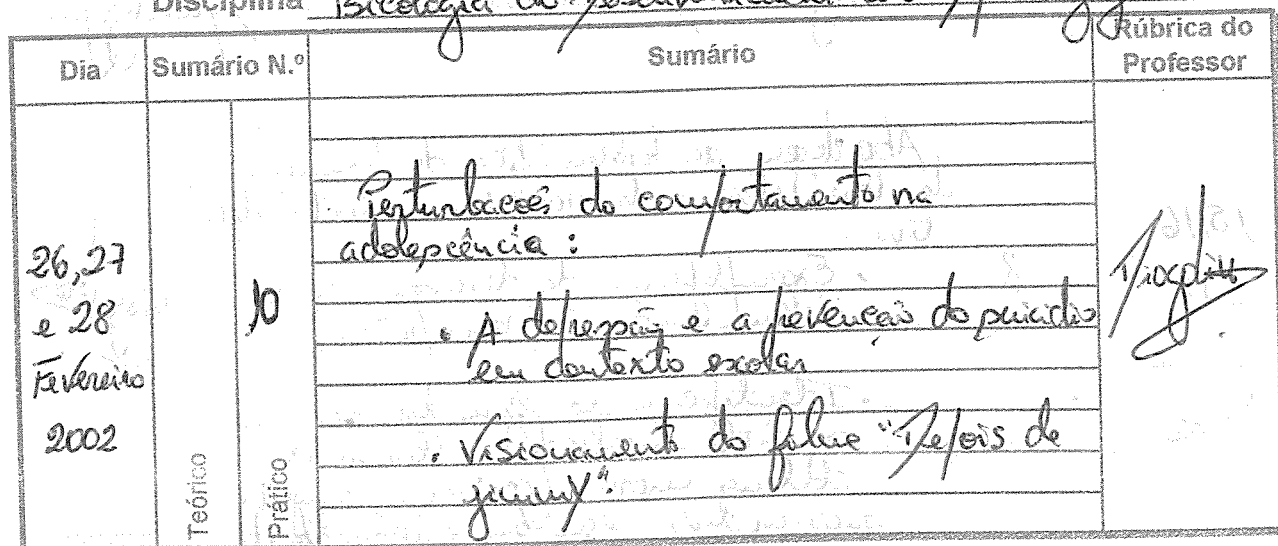 Disciplina Psicologia do Desenvolvimento e da
Dia Sumário N.º Sumário Rúbrica do Professor
26, 27
e 28
Fevereiro
2002
Teórico
Prático
10
Perturbações do comportamento na
adolescência :
. A depressão e a prevenção do suicídio
em contexto escolar
. Visionamento do filme "Depois de
jimmy".